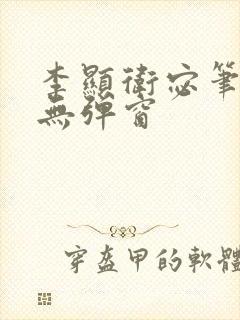 李顯衛宓筆
無彈窗
穿盔甲的軟體